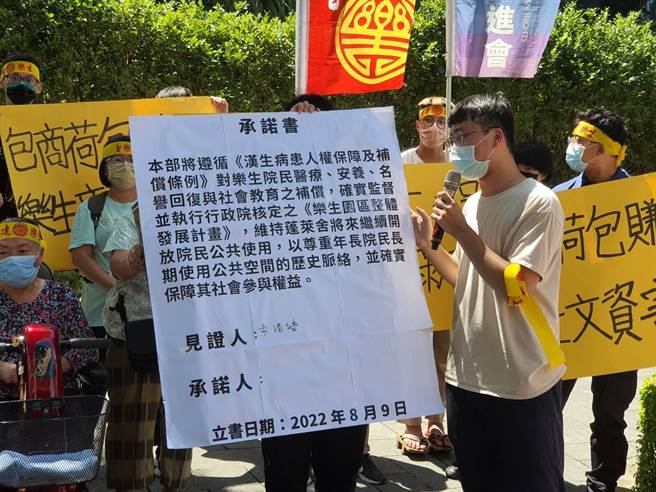 進會
樂
樂生
包商荷包
樂生
承諾書
本部將遵循《漢生病患人權保障及補
償條例》對樂生院民醫療、安養、名
譽回復與社會教育之補償，確實監督
並執行行政院核定之《樂生園區整體
發展計畫》，維持蓬萊舍將來繼續開
放院民公共使用，以尊重年長院民長
期使用公共空間的歷史脈絡，並確實
保障其社會參與權益。
見證人：
承諾人：
立書日期：2022年8月9日
荷包賺
文資